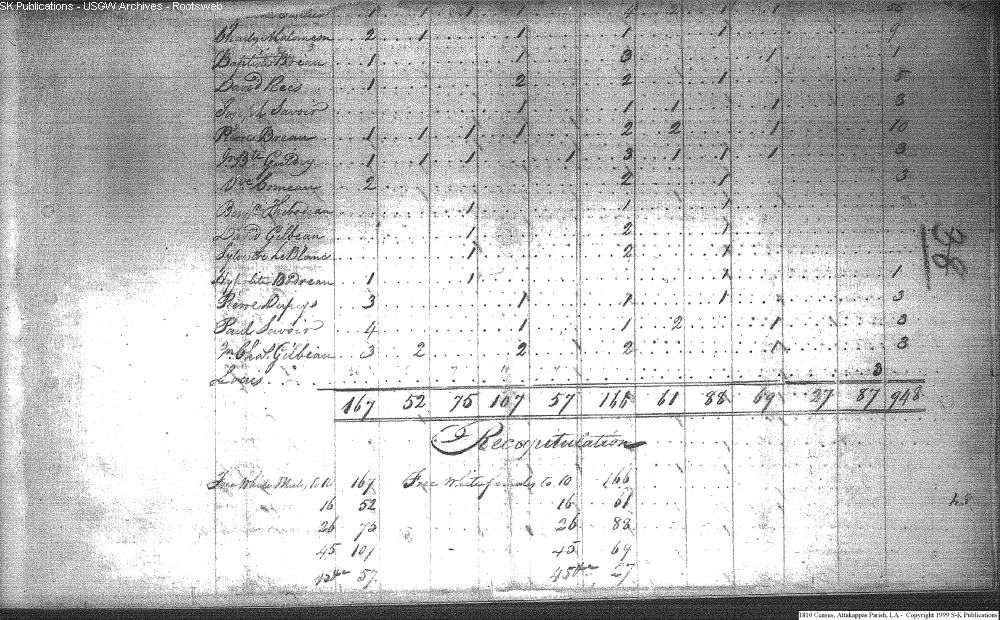 SK Publications - USGW Archives - Rootsweb
1 1 1 1 4 2 1 1 56
Charles Melancon 2 1 1 1 1 9
Baptiste Breau 1 1 3 1 1
David Rees 1 2 2 1 8
Joseph Savoir 1 1 1 1 1 3
Pierre Breau 1 1 1 1 2 2 1 10
Jn. Bte. Guidry 1 1 1 1 3 1 1 1 3
Vve Comeau 2 2 1 3
Benjn. Thibodeau 1 1 1
David Gilbeau 1 2 1
Sylvestre LeBlanc 1 2 1
Hypolite Bodreau 1 1 1 1
Pierre Dupuys 3 1 1 1 3
Paul Savoir 4 1 1 2 1 3
Jn. Chas. Gilbeau 3 2 2 2 1 3
Louis 3
38
167 52 75 107 57 166 61 88 69 27 87 948
Recapitulation
Free White Males to 10 167 Free White females to 10 166
16 52 16 61
26 75 26 88
45 107 45 69
57 45 27
1810 Census, Attakappas Parish, LA - Copyright 1999 S-K Publications